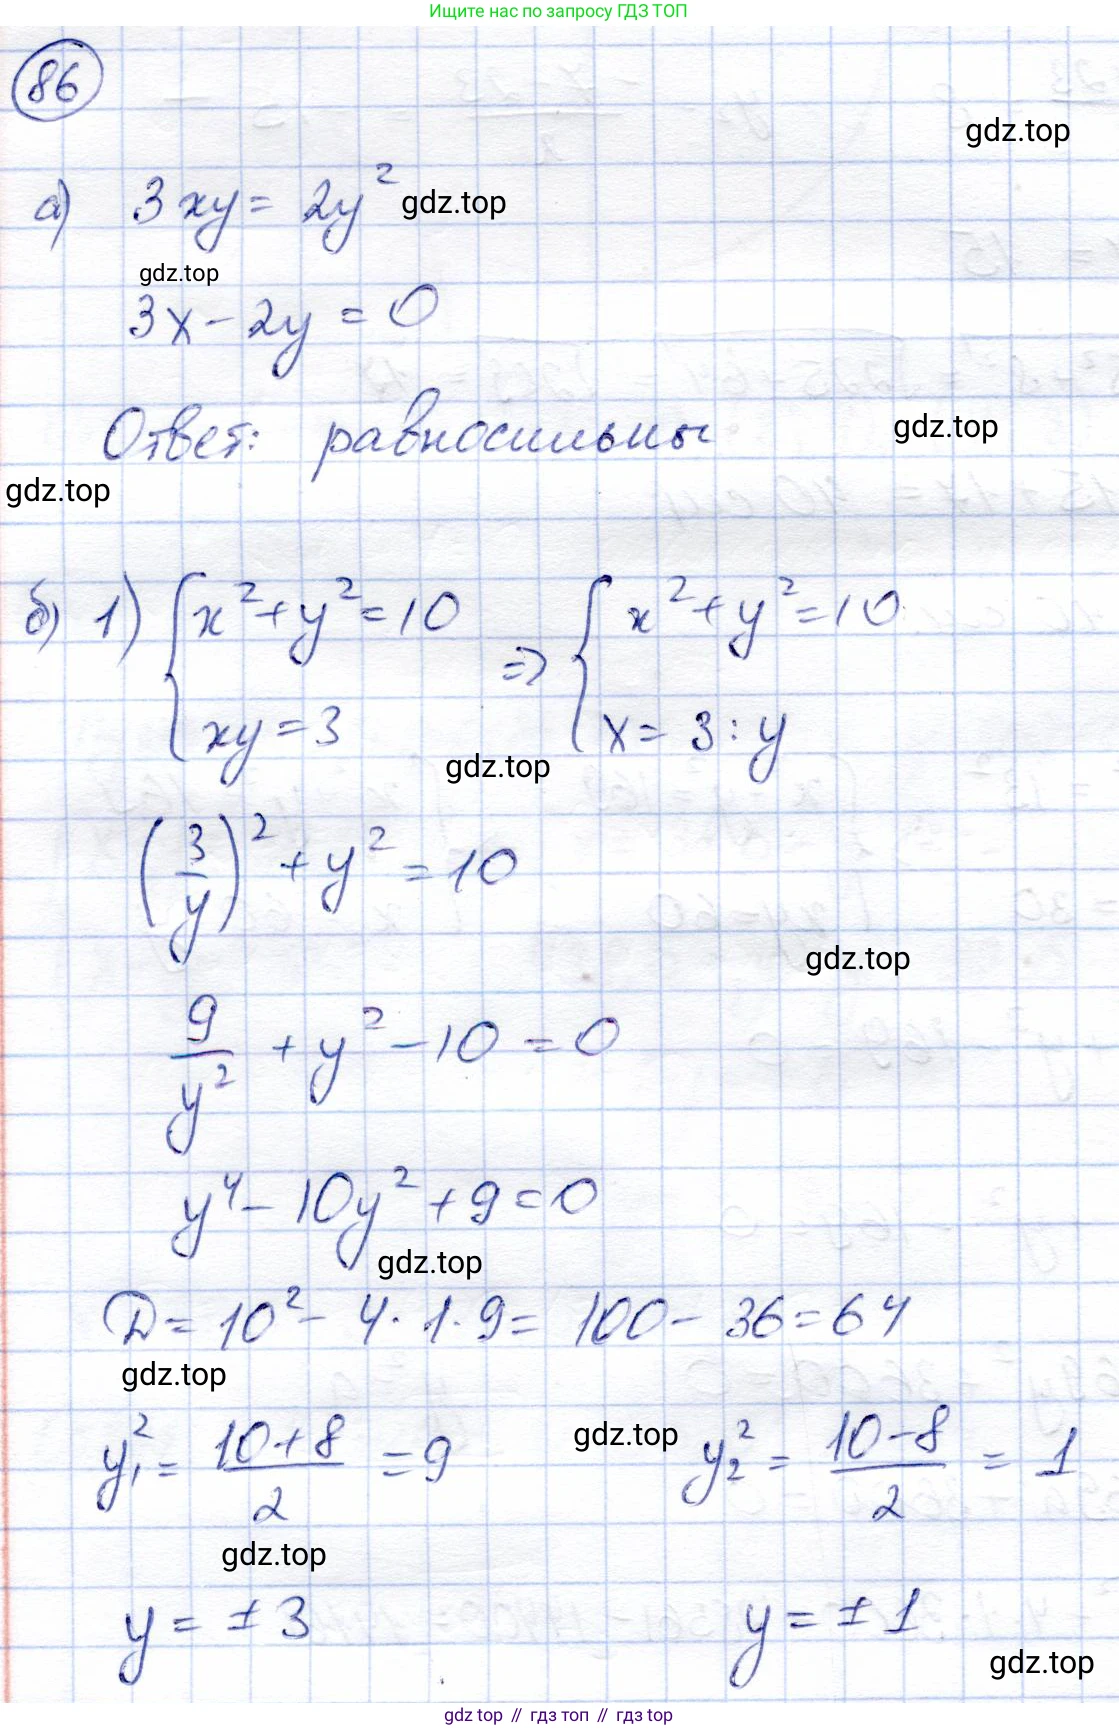 Ищите нас по запросу ГДЗ ТОП
86
gdz.top
а) 3xy = 2y² gdz.top
gdz.top
3x - 2y = 0
Ответ: равносильны gdz.top
gdz.top
б) 1) { x² + y² = 10 ⇒ { x² + y² = 10
xy = 3 x = 3 : y
gdz.top
(3/y)² + y² = 10
gdz.top
9/y² + y² - 10 = 0
y⁴ - 10y² + 9 = 0
gdz.top
D = 10² - 4 · 1 · 9 = 100 - 36 = 64
gdz.top
y₁² = (10 + 8)/2 = 9 gdz.top y₂² = (10 - 8)/2 = 1
gdz.top
y = ± 3 y = ± 1
gdz.top
gdz top // гдз топ // gdz top